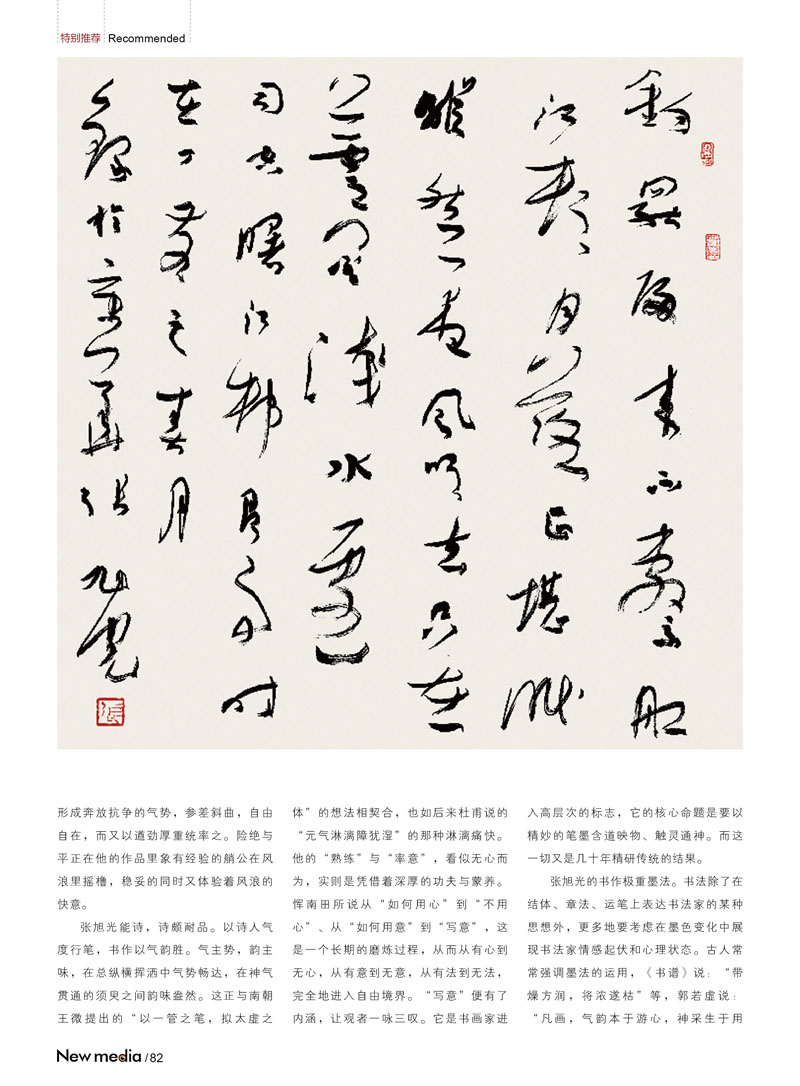 特别推荐 Recommended
釣罷歸来不繫船
江村月落正堪眠
縱然一夜風吹去只在
蘆花淺水邊
司空曙江村即事时
在丁亥之春月
於京華张旭光
形成奔放抗争的气势，参差斜曲，自由
自在，而又以遒劲厚重统率之。险绝与
平正在他的作品里象有经验的艄公在风
浪里摇橹，稳妥的同时又体验着风浪的
快意。
张旭光能诗，诗颇耐品。以诗人气
度行笔，书作以气韵胜。气主势，韵主
味，在总纵横挥洒中气势畅达，在神气
贯通的须臾之间韵味盎然。这正与南朝
王微提出的“以一管之笔，拟太虚之
体”的想法相契合，也如后来杜甫说的
“元气淋漓障犹湿”的那种淋漓痛快。
他的“熟练”与“率意”，看似无心而
为，实则是凭借着深厚的功夫与蒙养。
恽南田所说从“如何用心”到“不用
心”、从“如何用意”到“写意”，这
是一个长期的磨炼过程，从而从有心到
无心，从有意到无意，从有法到无法，
完全地进入自由境界。“写意”便有了
内涵，让观者一咏三叹。它是书画家进
入高层次的标志，它的核心命题是要以
精妙的笔墨含道映物、触灵通神。而这
一切又是几十年精研传统的结果。
张旭光的书作极重墨法。书法除了在
结体、章法、运笔上表达书法家的某种
思想外，更多地要考虑在墨色变化中展
现书法家情感起伏和心理状态。古人常
常强调墨法的运用，《书谱》说：“带
燥方润，将浓遂枯”等，郭若虚说：
“凡画，气韵本于游心，神采生于用
New media /82